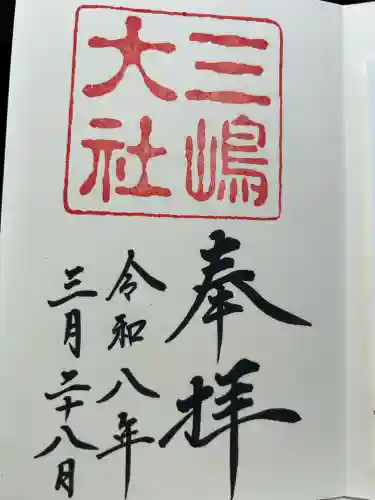 三嶋
大社
奉拝
令和八年
三月二十八月